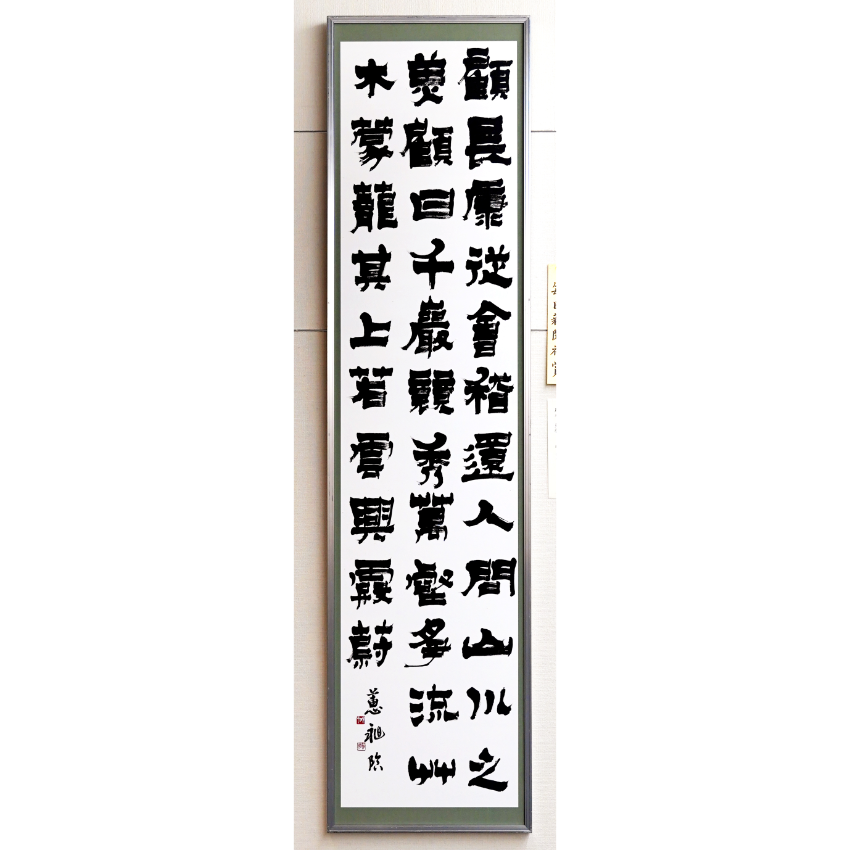 顧長康從會稽還人問山川之
美顧曰千巖競秀萬壑爭流艸
木蒙蘢其上若雲興霞蔚
蕙昶臨